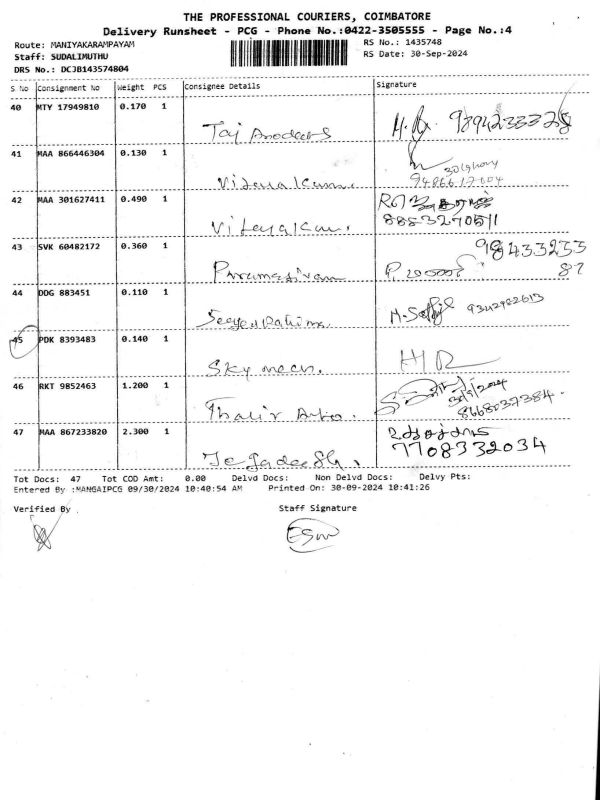 THE PROFESSIONAL COURIERS, COIMBATORE
Delivery Runsheet - PCG - Phone No.:0422-3505555 - Page No.:4
Route: MANIYAKARAMPAYAM RS No.: 1435748
Staff: SUDALIMUTHU RS Date: 30-Sep-2024
DRS No.: DCJB143574804
S No Consignment No Weight PCS Consignee Details Signature
40 MTY 17949810 0.170 1
Taj 9894233328
41 MAA 866446304 0.130 1
Vijayakumar
42 MAA 301627411 0.490 1
8883270511
43 SVK 60482172 0.360 1 98433233
Paramasivam P. 87
44 DDG 883451 0.110 1
9342982613
45 PDK 8393483 0.140 1
Sky mech. HR
46 RKT 9852463 1.200 1 30/9/2024
Thalir Auto. 8668037384.
47 MAA 867233820 2.300 1
Jegadeesh. 7708332034
Tot Docs: 47 Tot COD Amt: 0.00 Delvd Docs: Non Delvd Docs: Delvy Pts:
Entered By :MANGAIPCG 09/30/2024 10:40:54 AM Printed On: 30-09-2024 10:41:26
Verified By Staff Signature